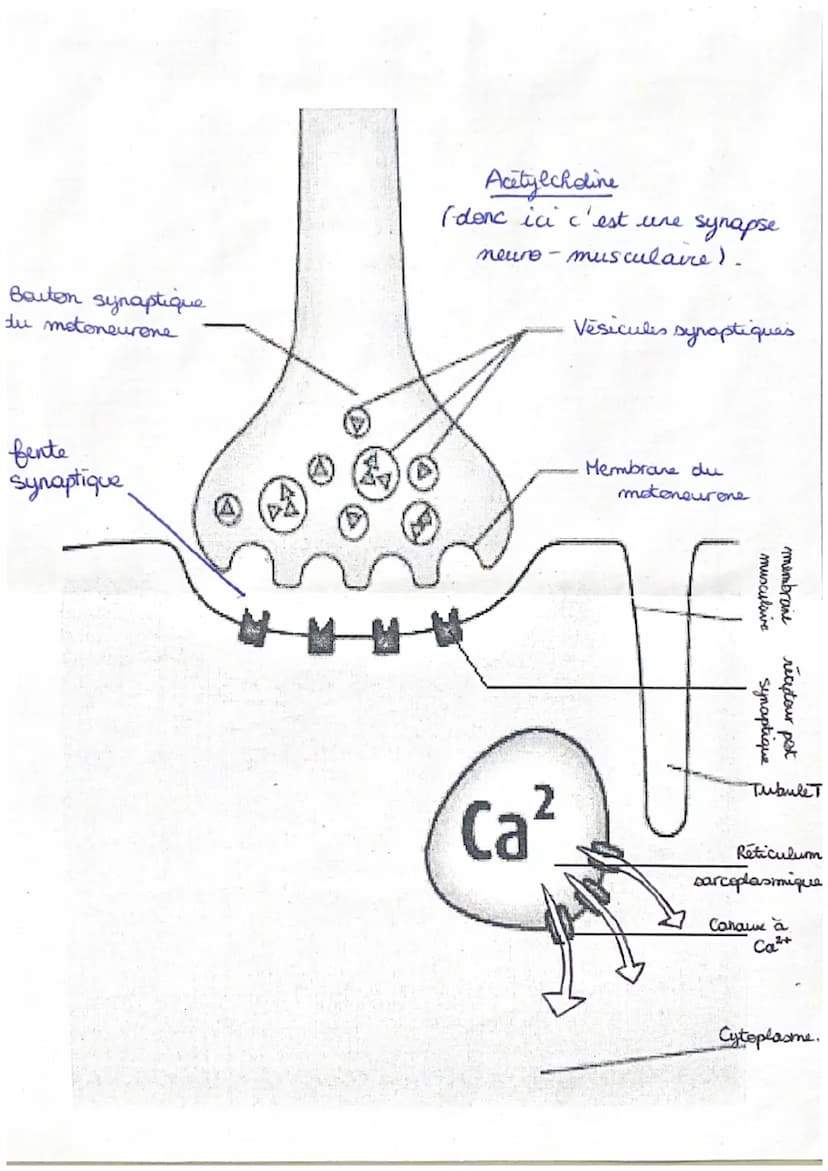 Acétylcholine
(donc ici c'est une synapse
neuro-musculaire).
Bouton synaptique
du motoneurone
Vésicules synaptiques
fente
synaptique
Membrane du
motoneurone
membrane
musculaire
récepteur post
synaptique
Tubule T
Ca²
Réticulum
sarcoplasmique
Canaux à
Ca²⁺
Cytoplasme.